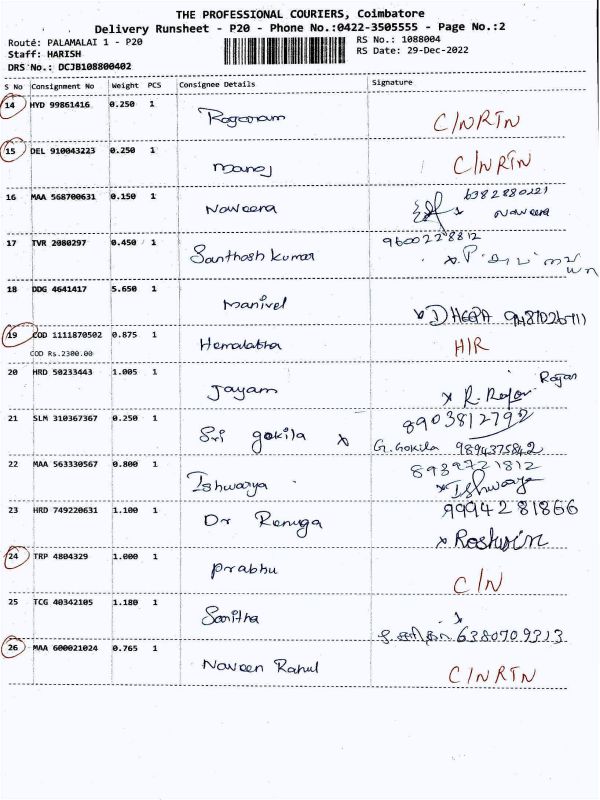 THE PROFESSIONAL COURIERS, Coimbatore
Delivery Runsheet - P20 - Phone No.:0422-3505555 - Page No.:2
Route: PALAMALAI 1 - P20
RS No.: 1088004
Staff: HARISH
RS Date: 29-Dec-2022
DRS No.: DCJB108800402
S No Consignment No Weight PCS Consignee Details Signature
14 HYD 99861416 0.250 1 C/NRTN
15 DEL 910043223 0.250 1 Manoj C/NRTN
16 MAA 568700631 0.150 1 Naveena 6382880221
Naveena
17 TVR 2080297 0.450 1 Santhosh Kumar 9600228812
18 DDG 4641417 5.650 1 Manivel x DHEEPA
19 COD 1111870502 0.875 1 Hemalatha H/R
COD Rs.2300.00
20 HRD 50233443 1.005 1 Jayam x R. Rajan Rajan
21 SLM 310367367 0.250 1 Sri gokila x 8903812792
G. Gokila 9894375842
22 MAA 563330567 0.800 1 Ishwarya 8939721812
x Ishwarya
23 HRD 749220631 1.100 1 Dr Renuga 9994281866
x
24 TRP 4804329 1.000 1 Prabhu C/N
25 TCG 40342105 1.180 1 x
6380709313
26 MAA 600021024 0.765 1 Naveen Rahul C/NRTN